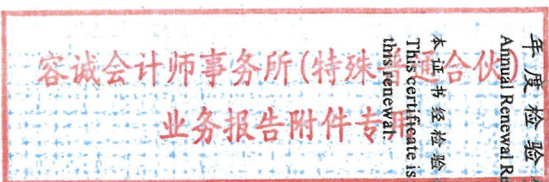 容诚会计师事务所(特殊普通合伙)
业务报告附件专用
年度检验
Annual Renewal R
本证书经检验
This certificate is
this renewal.